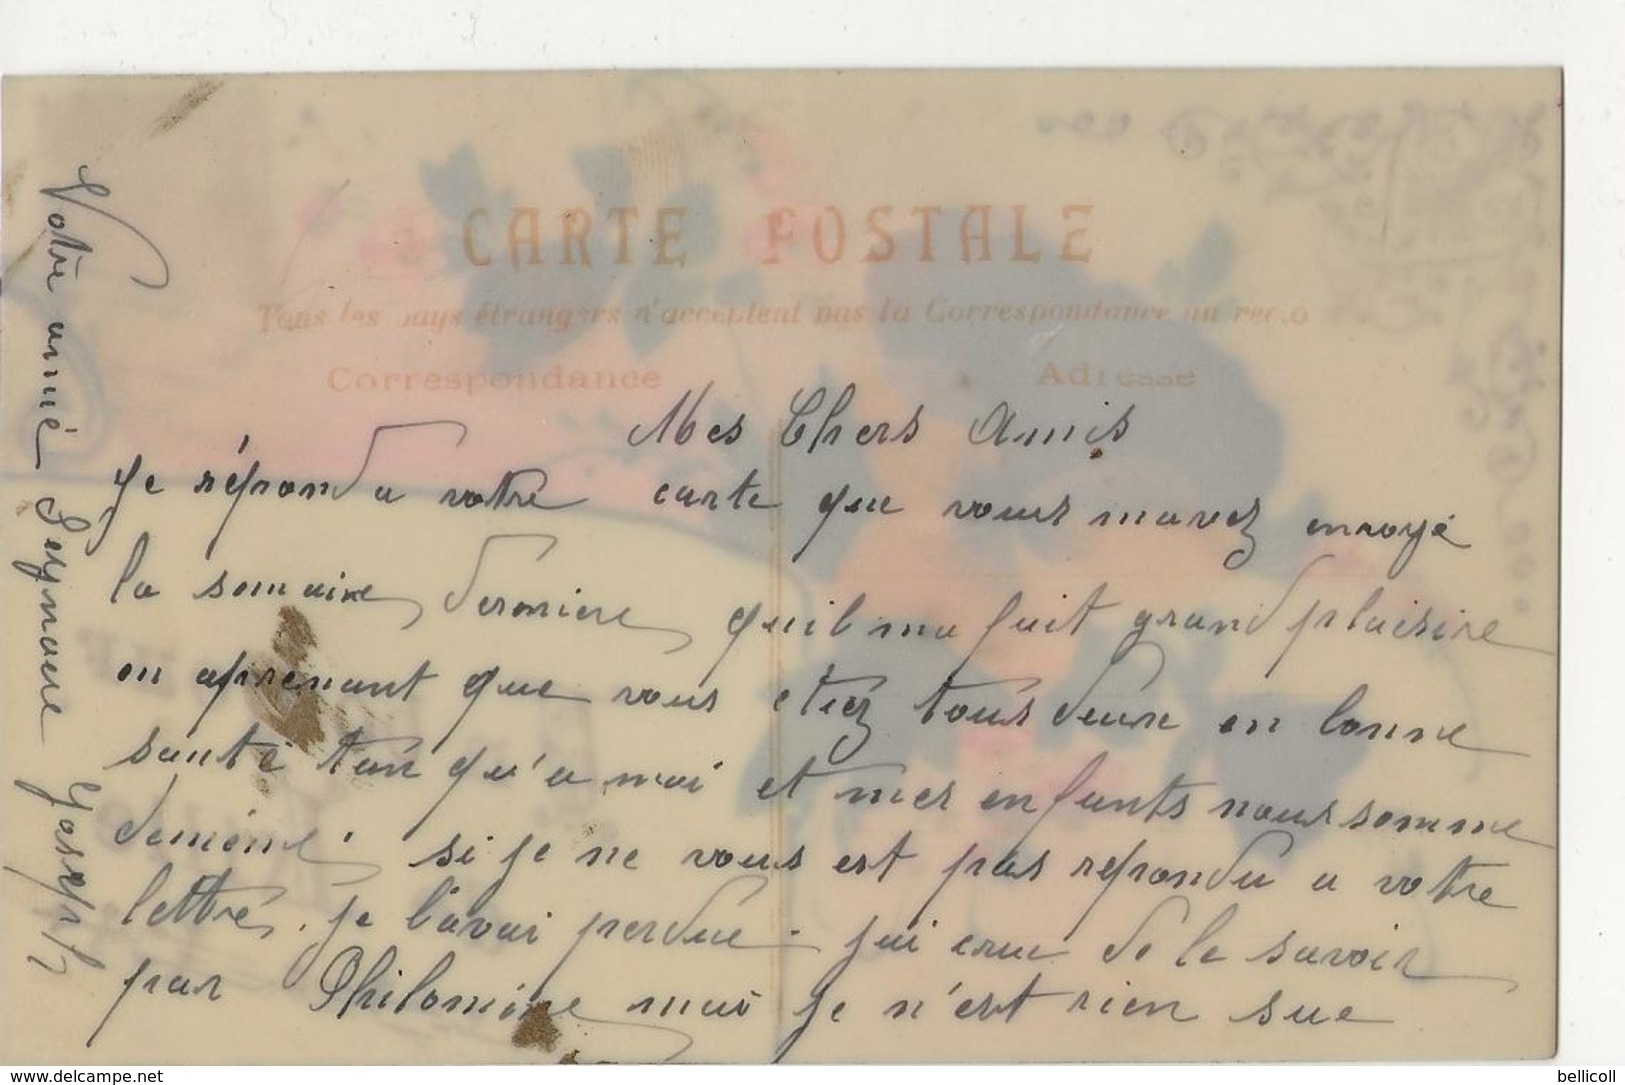 CARTE POSTALE
Tous les pays étrangers n'acceptent pas la Correspondance au recto
Correspondance
Adresse
Mes Chers Amis
Je répond a votre carte que vous mavez envoyé
la semaine derniere quil ma fait grand plaisire
en aprenant que vous etiez tous deux en bonne
santé tan qu'a moi et mes enfants nous somme
deméme si je ne vous est pas repondu a votre
lettre. je l'avai perdue. jai crue de le savoir
par Philomine mais je n'est rien sue
Votre amié Seynoure Joseph
www.delcampe.net
bellicoll